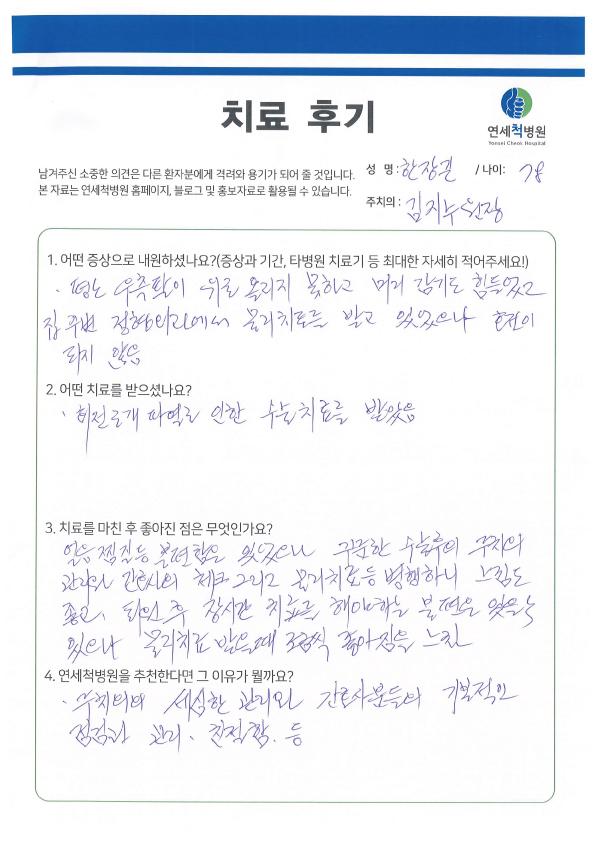 치료 후기
연세척병원
Yonsei Cheok Hospital
남겨주신 소중한 의견은 다른 환자분에게 격려와 용기가 되어 줄 것입니다.
본 자료는 연세척병원 홈페이지, 블로그 및 홍보자료로 활용될 수 있습니다.
성 명: 한장길 /나이: 78
주치의: 김지누 원장
1. 어떤 증상으로 내원하셨나요?(증상과 기간, 타병원 치료기 등 최대한 자세히 적어주세요!)
· 평소 우측팔이 위로 올리지 못하고 머리 감기도 힘들었고
집 주변 정형외과에서 물리치료를 받고 있었으나 호전이
되지 않음
2. 어떤 치료를 받으셨나요?
· 회전근개 파열로 인한 수술치료를 받았음
3. 치료를 마친 후 좋아진 점은 무엇인가요?
얼음찜질등 불편함은 있었으나 꾸준한 수술후의 주치의
관리와 간호사의 체크 그리고 물리치료등 병행하니 느낌도
좋고, 퇴원 후 장시간 치료를 해야하는 불편은 있을 수
있으나 물리치료 받을때 조금씩 좋아짐을 느낌
4. 연세척병원을 추천한다면 그 이유가 뭘까요?
· 주치의의 세심한 관리와 간호사분들의 기본적인
점검과 관리, 친절함. 등